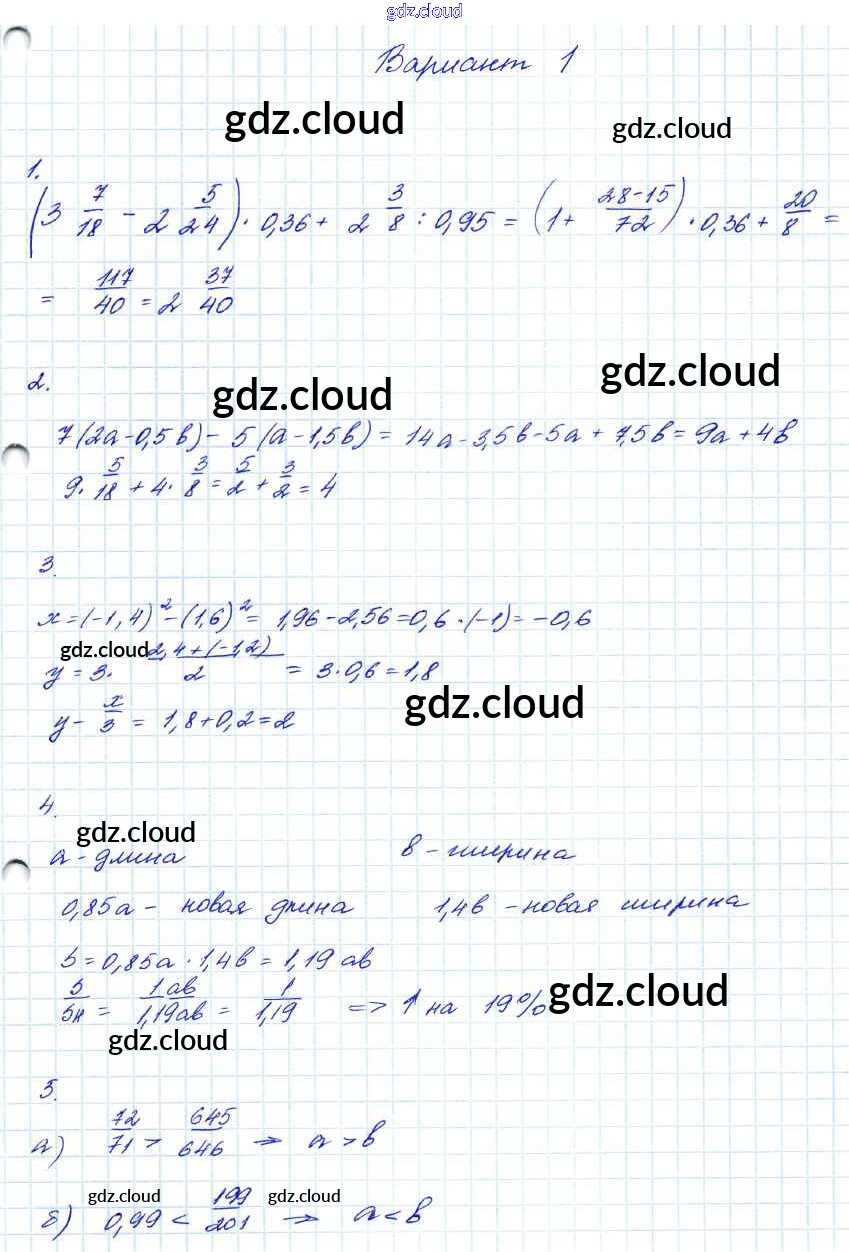 gdz.cloud
Вариант 1
gdz.cloud gdz.cloud
1.
(3 7/18 - 2 5/24) · 0,36 + 2 3/8 : 0,95 = (1 + 28-15/72) · 0,36 + 20/8 =
= 117/40 = 2 37/40
2.
gdz.cloud gdz.cloud
7(2a-0,5b) - 5(a-1,5b) = 14a-3,5b-5a+7,5b = 9a+4b
9 · 5/18 + 4 · 3/8 = 5/2 + 3/2 = 4
3.
x = (-1,4)² - (1,6)² = 1,96 - 2,56 = 0,6 · (-1) = -0,6
gdz.cloud
y = 3 · 2,4+(-1,2)/2 = 3 · 0,6 = 1,8
gdz.cloud
y - x/3 = 1,8 + 0,2 = 2
4.
gdz.cloud
a - длина b - ширина
0,85a - новая длина 1,4b - новая ширина
S = 0,85a · 1,4b = 1,19 ab
S/Sн = 1ab/1,19ab = 1/1,19 => ↑ на 19%
gdz.cloud
gdz.cloud
5.
а) 72/71 > 645/646 → a > b
gdz.cloud gdz.cloud
б) 0,99 < 199/201 → a < b